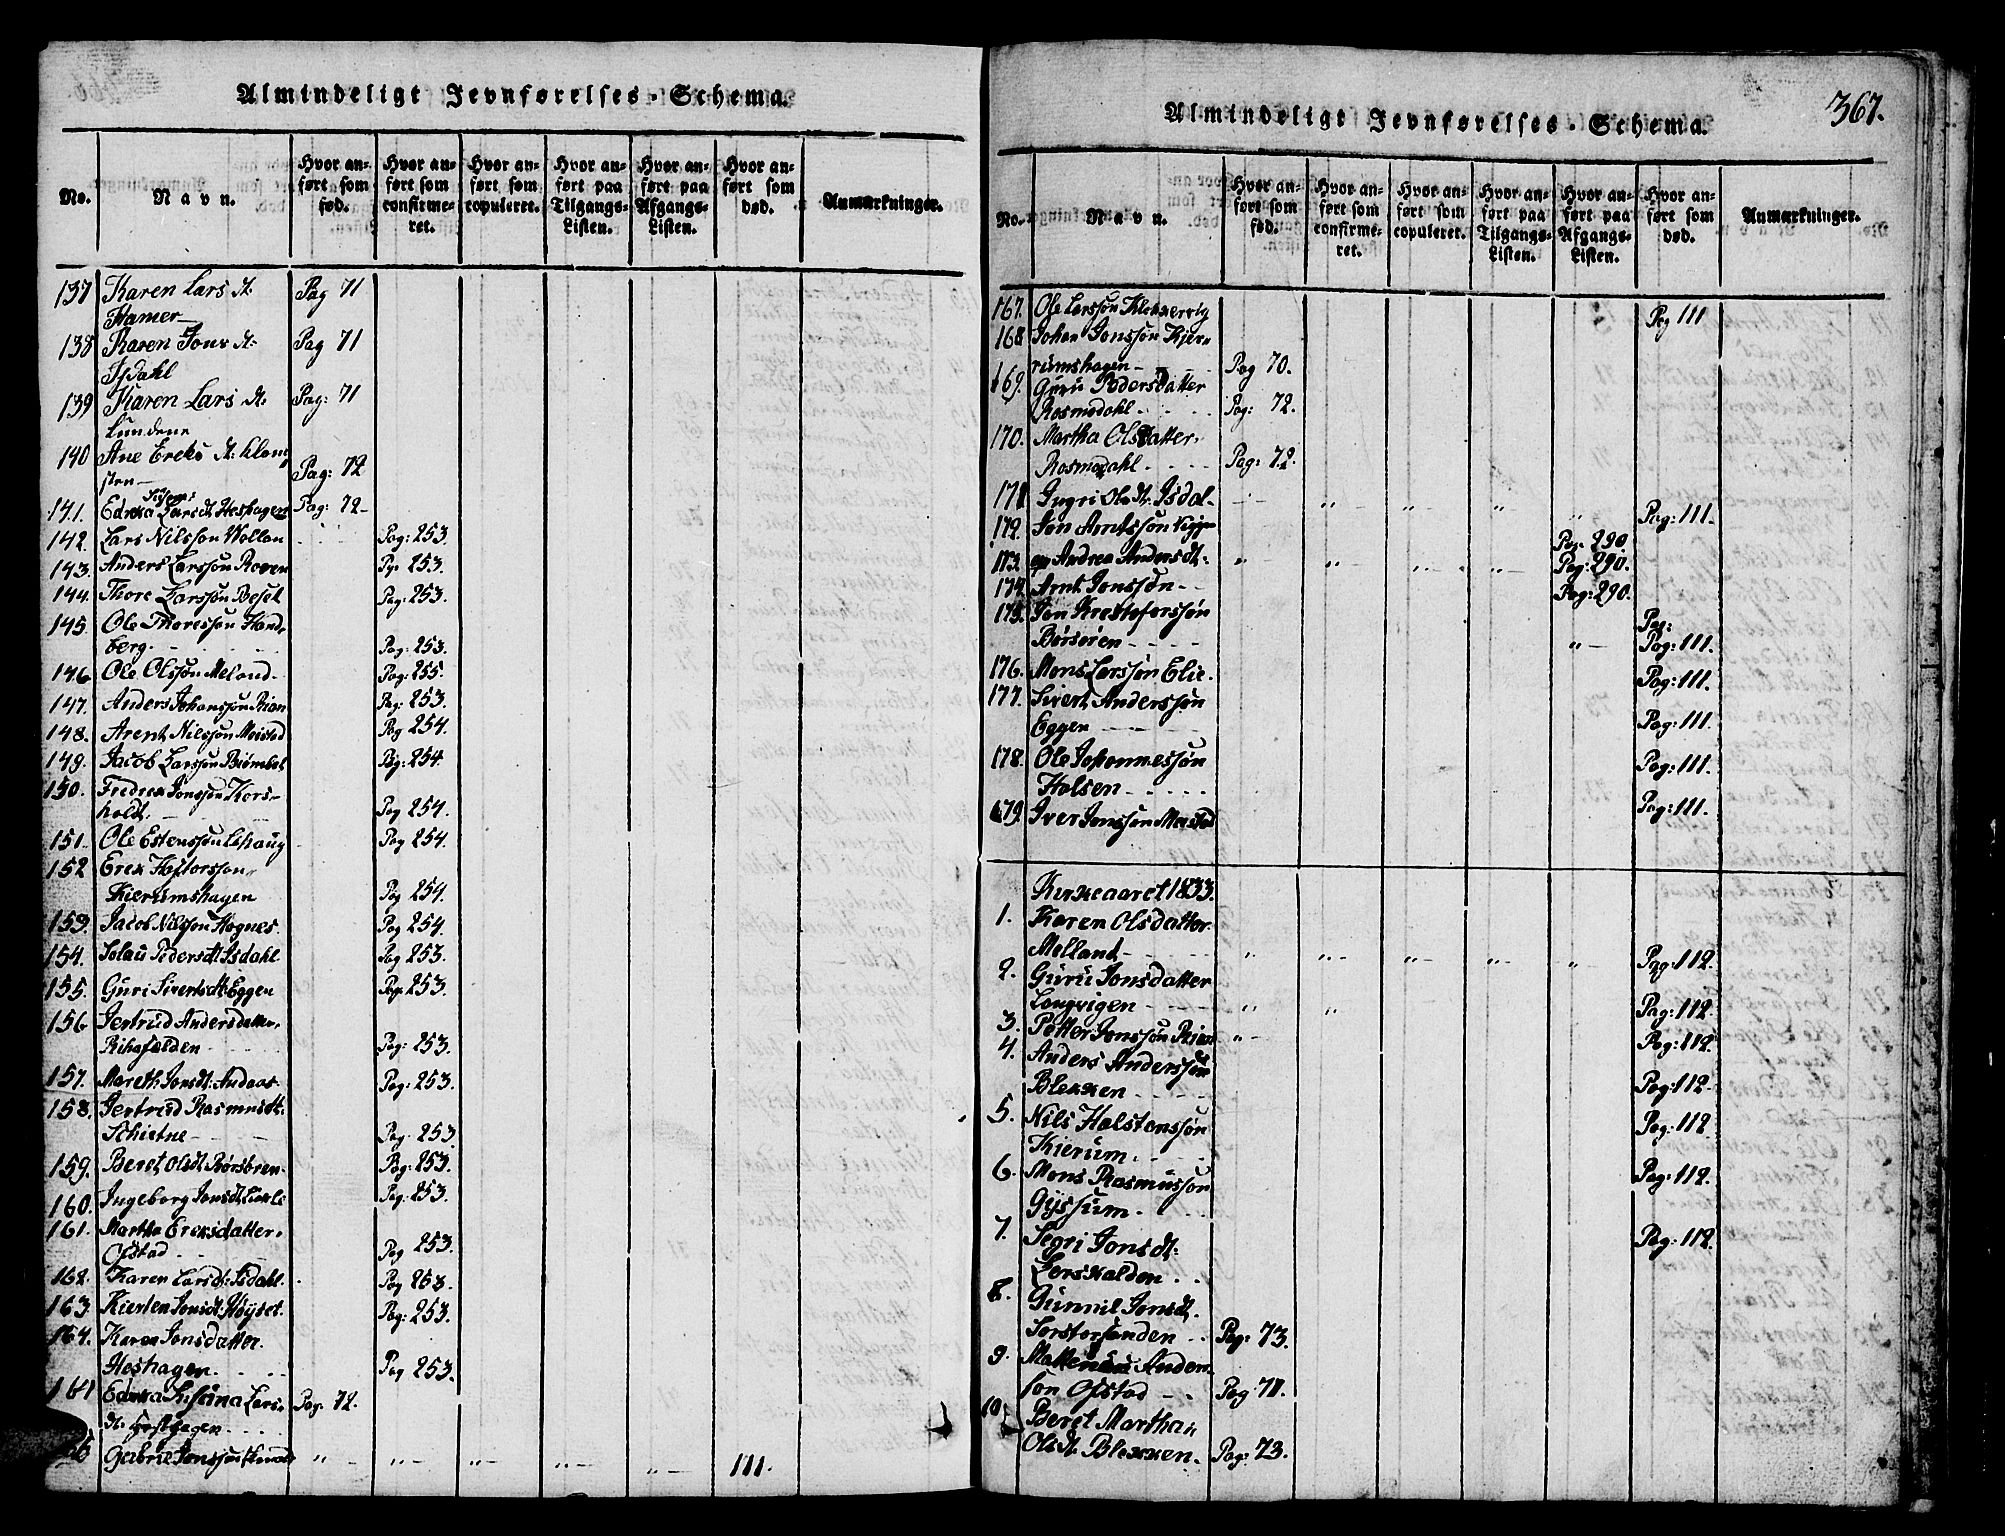 Almindeligt Jevnførelses-Schema.
No.
Navn.
Hvor anført som fød.
Hvor anført som confirmeret.
Hvor anført som copuleret.
Hvor anført paa Tilgangs-Listen.
Hvor anført paa Afgangs-Listen.
Hvor anført som død.
Anmærkninger.
137 Karen Lars dt. Pag 71
Hamer
138 Karen Jons dt: Pag 71
Isdahl
139 Karen Lars dt: Pag: 71
Lundene
140 Ane Ereks dt:
sten Pag: 72
141. Larsdt Heshagen Pag: 72
142. Lars Nilsson Wollan Pag: 253.
143. Anders Larssøn Roven Pag 253.
144. Thore Larssøn Beset Pag: 253.
145. Ole Thoressøn Hand-
berg. Pag: 253.
146 Ole Olssøn Meland. Pag: 255.
147. Anders Johanssøn Rian Pag: 253.
148. Arent Nilssøn Meistad Pag 254.
149. Jacob Larssøn Pag: 254.
150. Fredrek Jonssøn Kors-
holdt. Pag 254.
151. Ole Estenssøn Lehaug Pag 254.
152 Erek
Kierumshagen Pag 254.
153. Jacob Nilssøn Hognes. Pag 254.
154. Pedersdt Isdahl Pag 253.
155. Guri Sivertsdt: Eggen Pag: 253.
156 Jertrud Andersdatter.
Pag: 253.
157. Mareth Jonsdt: Andaas Pag: 253.
158. Jertrud Rasmusdt:
Schietne Pag: 253.
159. Beret Olsdt. Pag: 253.
160. Ingeborg Jonsdt. Pag: 253.
161. Martha Ereksdatter.
Ofstad Pag 253.
162. Karen Larsdt: Isdahl. Pag 253.
163 Kiersten Jonsdt: Høyset. Pag: 253.
164. Karen Jonsdatter.
Heshagen Pag 253.
Pag. 72.
Jonssøn 111.
Almindeligt Jevnførelses-Schema.
367.
No.
Navn.
Hvor anført som fød.
Hvor anført som confirmeret.
Hvor anført som copuleret.
Hvor anført paa Tilgangs-Listen.
Hvor anført paa Afgangs-Listen.
Hvor anført som død.
Anmærkninger.
167. Ole Larssøn Klokkervig Pag 111
168 Johan Jonssøn Kjer-
rumshagen Pag 70.
169. Guru Pedersdatter
Rosmodahl Pag: 72.
170. Martha Olsdatter.
Rosmodahl Pag: 72.
171 Ingri Olsdt. Isdal Pag: 111.
172. Jon Arntssøn Pag: 290
173. Andrea Andersdt: Pag: 290.
174 Arnt Jonssøn Pag: 290.
175. Jon Krestofersøn Pag:
Børsøren Pag: 111.
176. Mons Larssøn Elie. Pag: 111.
177. Sivert Anderssøn
Eggen Pag: 111.
178. Ole Johannessøn
Holsen Pag: 111.
179. Iver Jonssøn Pag: 111.
Kirkeaaret 1833.
1. Karen Olsdatter
Melland Pag: 112.
2. Guru Jonsdatter
Langvigen Pag: 112.
3. Petter Jonssøn Rian Pag: 112
4. Anders Anderssøn
Blekken Pag: 112
5. Nils Holstenssøn
Kierum Pag: 112.
6. Mons Rasmussøn
Gyssum. Pag: 112.
7. Segri Jonsdt:
Pag: 112.
8. Gunnil Jonsdt.
Pag: 73.
9. Ander
søn Ofstad Pag: 71.
10. Beret Martha
Olsdt. Blekken. Pag: 73.